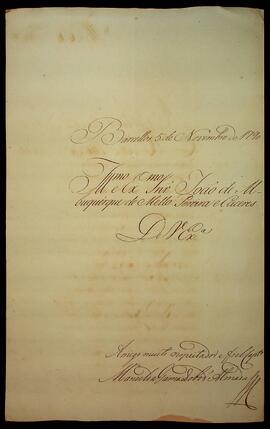 Barcellos 5 de Novembro de 1790
Illmo Exmo
Snr João de Al
buquerque de Mello Pereira e Caceres
De V Exa
Amigo muito
Manoel da Gama Lobo d'Almada